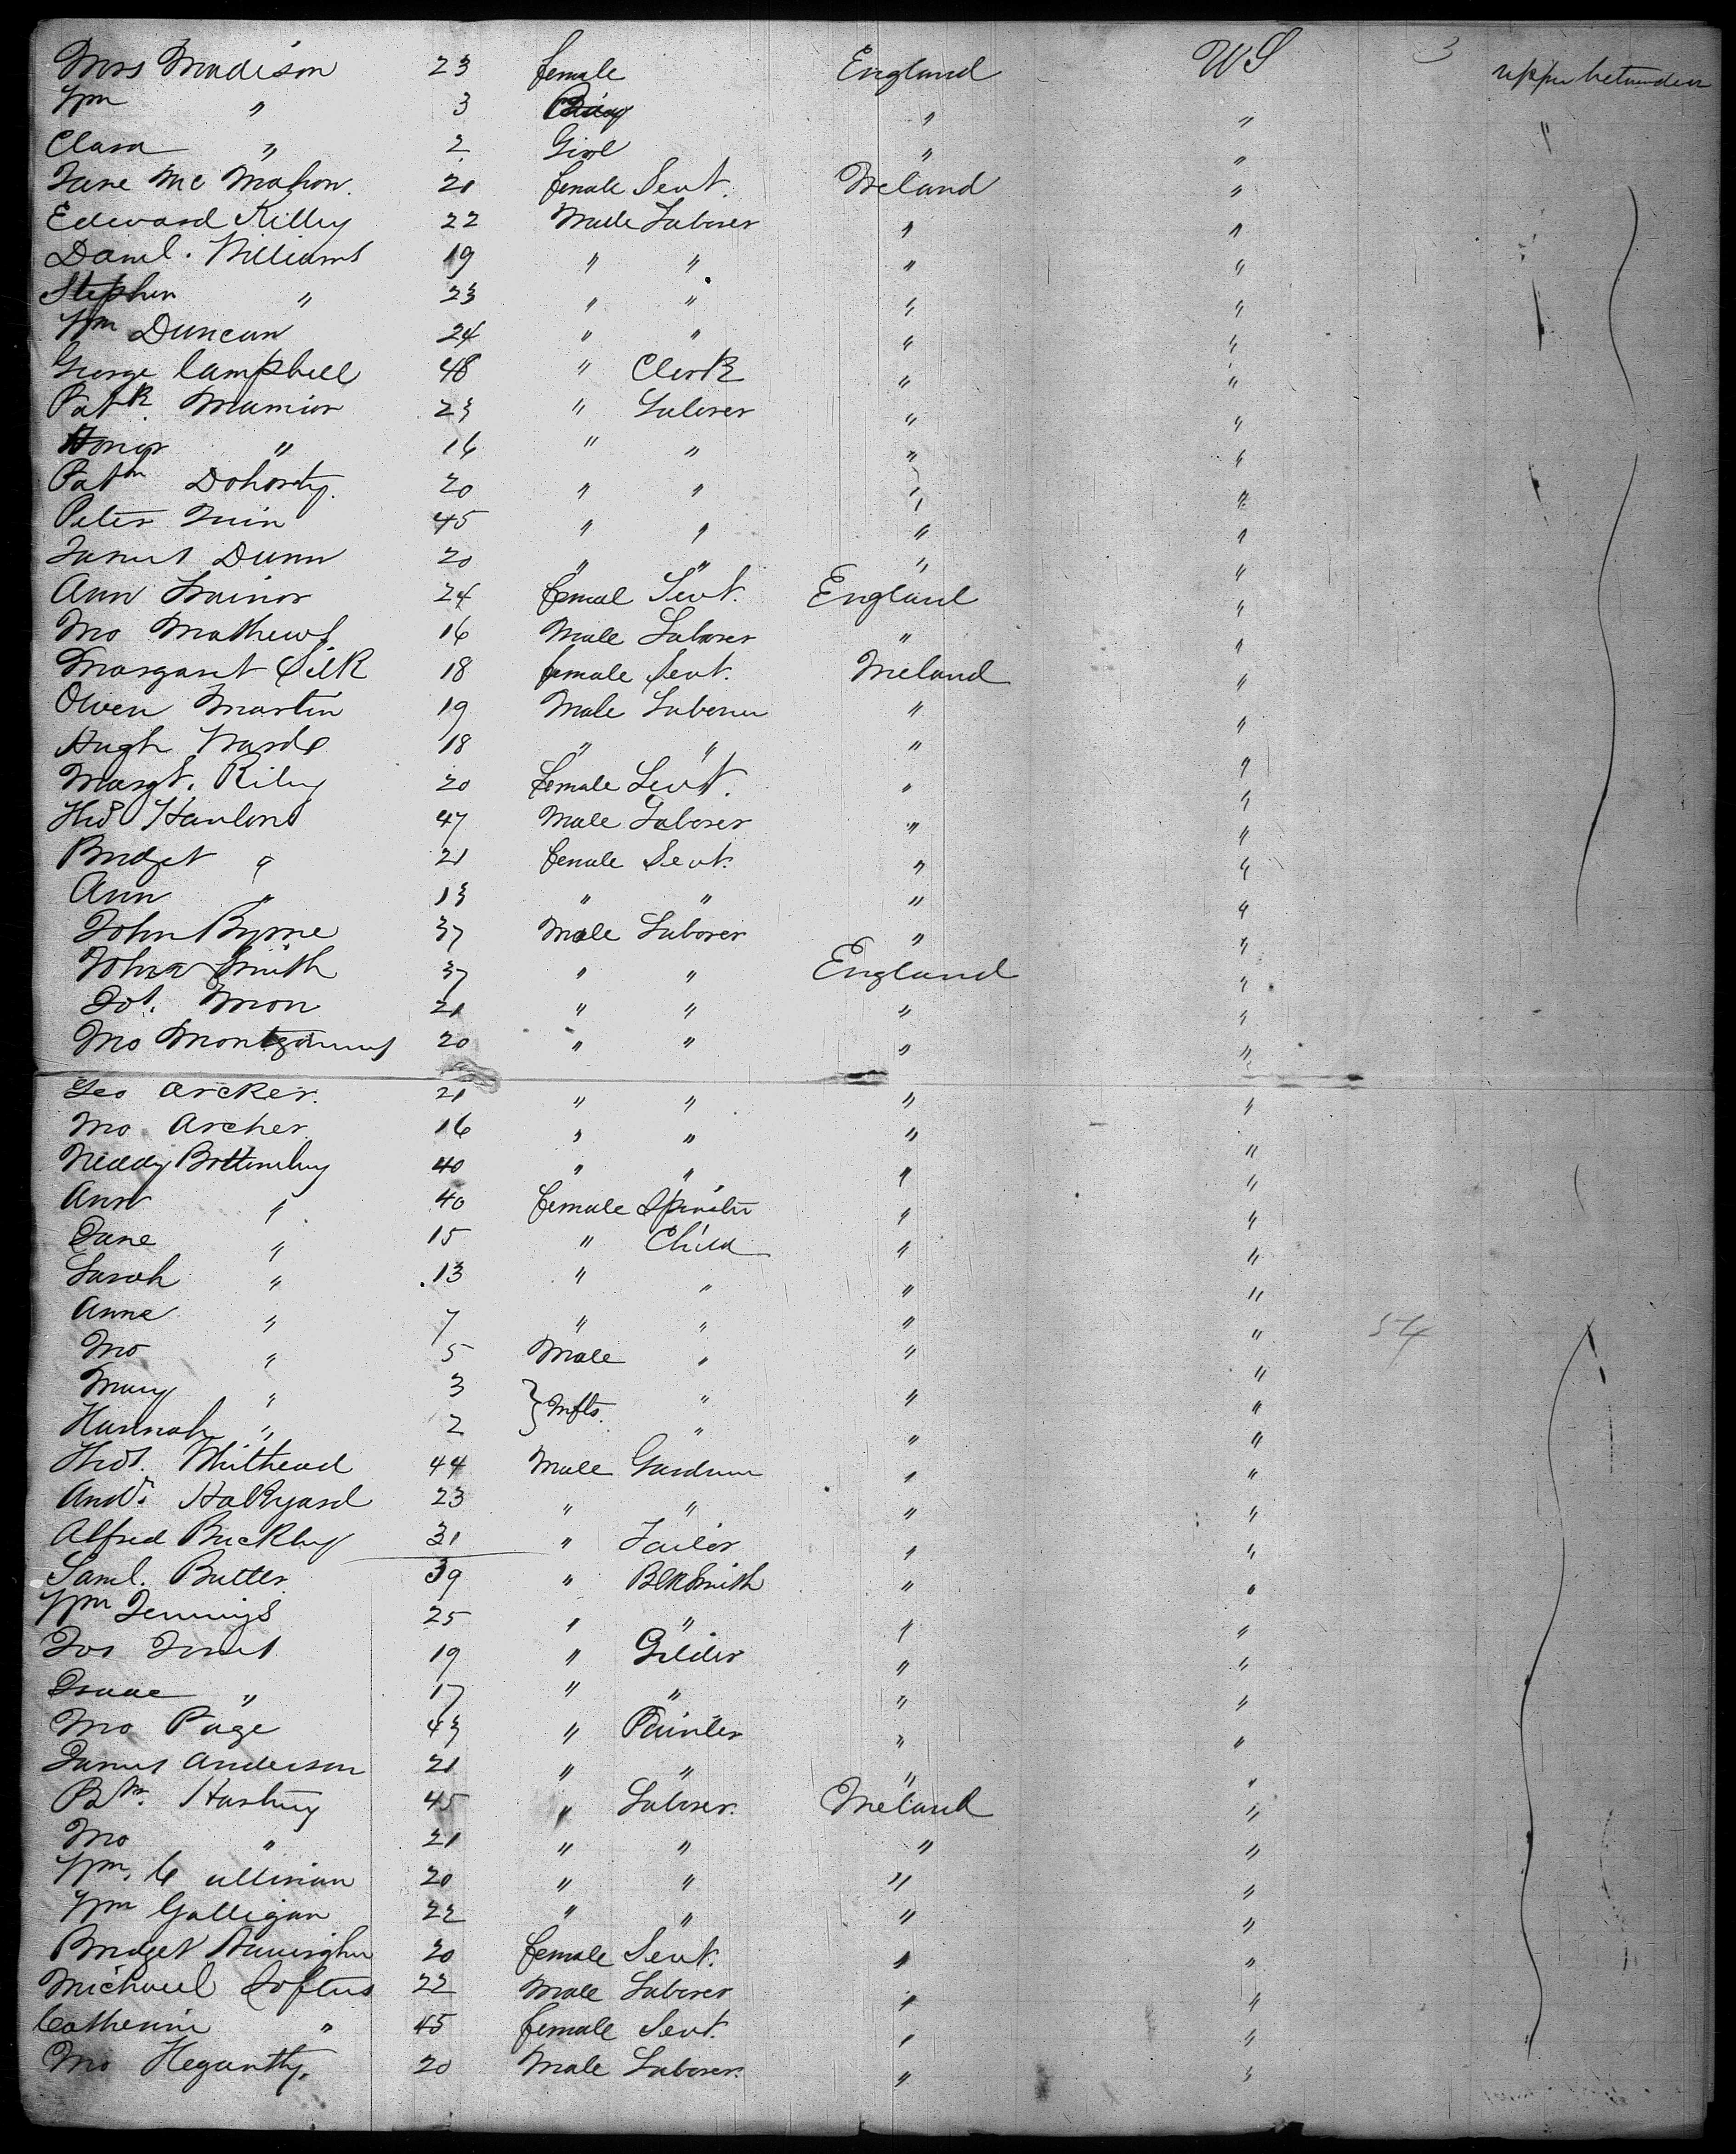 Mrs Madison 23 female England WS 3 upper between decks
Wm " 3 " "
Clara " 2 Girl " "
Jane Mc Mahon. 21 female Sevt. Ireland "
Edward Killey 22 Male Laborer " "
Danl. Williams 19 " " " "
Stephen " 23 " " " "
Wm Duncan 24 " " " "
George Campbell 48 " Clerk " "
Patk. 23 " Laborer " "
Honor " 16 " " " "
Patk Dohorty. 20 " " " "
Peter 45 " " " "
James Dunn 20 " " " "
Ann Trainor 24 femal Sevt. England "
Jno Mathews 16 Male Laborer " "
Margaret Silk 18 female Sevt. Ireland "
Owen Martin 19 Male Laborer " "
Hugh Ward 18 " " " "
Margt. Riley 20 female Sevt. " "
Thos Hanlon 47 Male Laborer " "
Bridget " 21 female Sevt. " "
Ann " 13 " " " "
John Byrne 37 Male Laborer " "
John Smith 37 " " England "
Jos. 21 " " " "
Jno Montgomery 20 " " " "
Geo Archer. 21 " " " "
Jno Archer. 16 " " " "
Neddy Bottomley 40 " " " "
Ann " 40 female Spinster " "
Jane " 15 " Child " "
Sarah " 13 " " " "
Anne " 7 " " " "
Jno " 5 Male " " " 54
Mary " 3 } Infts. " " "
Hannah " 2 " " "
Thos. Whithead 44 Male Gardener " "
Andr. Halkyard 23 " " " "
Alfred Buckley 31 " Tailor " "
Saml. Butter 39 " BlkSmith " "
Wm Jennings 25 " " " "
Jos 19 " Gilder " "
Isaac " 17 " " " "
Jno Page 43 " Painter " "
James Anderson 21 " " " "
45 " Laborer. Ireland "
Jno " 21 " " " "
Wm. Cullinan 20 " " " "
Wm Galligan 22 " " " "
Bridget 20 female Sevt. " "
Michael Loftus 22 Male Laborer " "
Catherine " 45 female Sevt. " "
Jno Hegartty. 20 Male Laborer. " "